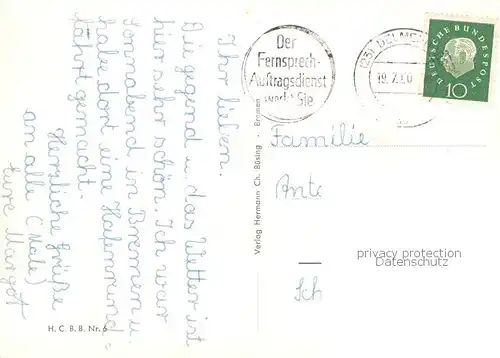 Ihr lieben.
Die Gegend u. das Wetter ist
hier sehr schön. Ich war
Sonnabend in Bremen u.
habe dort eine Hafenrund=
fahrt gemacht.
Herzliche Grüße
an alle (Male)
eure Margot
H. C. B. B. Nr. 6
Verlag Hermann Ch. Büsing · Bremen
Der
Fernsprech-
Auftragsdienst
weckt Sie
(23) DELMEN
19.7.60
DEUTSCHE BUNDESPOST
10
Familie
Ant
Sch
privacy protection
Datenschutz